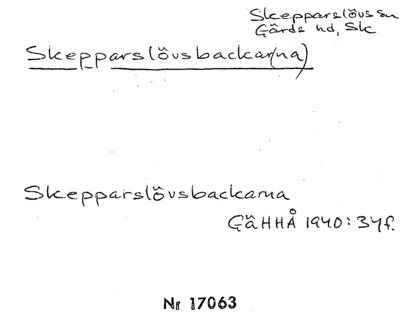 Skepparslövs sn
Gärds hd, Sk
Skepparslövsbackar(na)
Skepparslövsbackarna
GäHHÅ 1940:34f.
Nr 17063